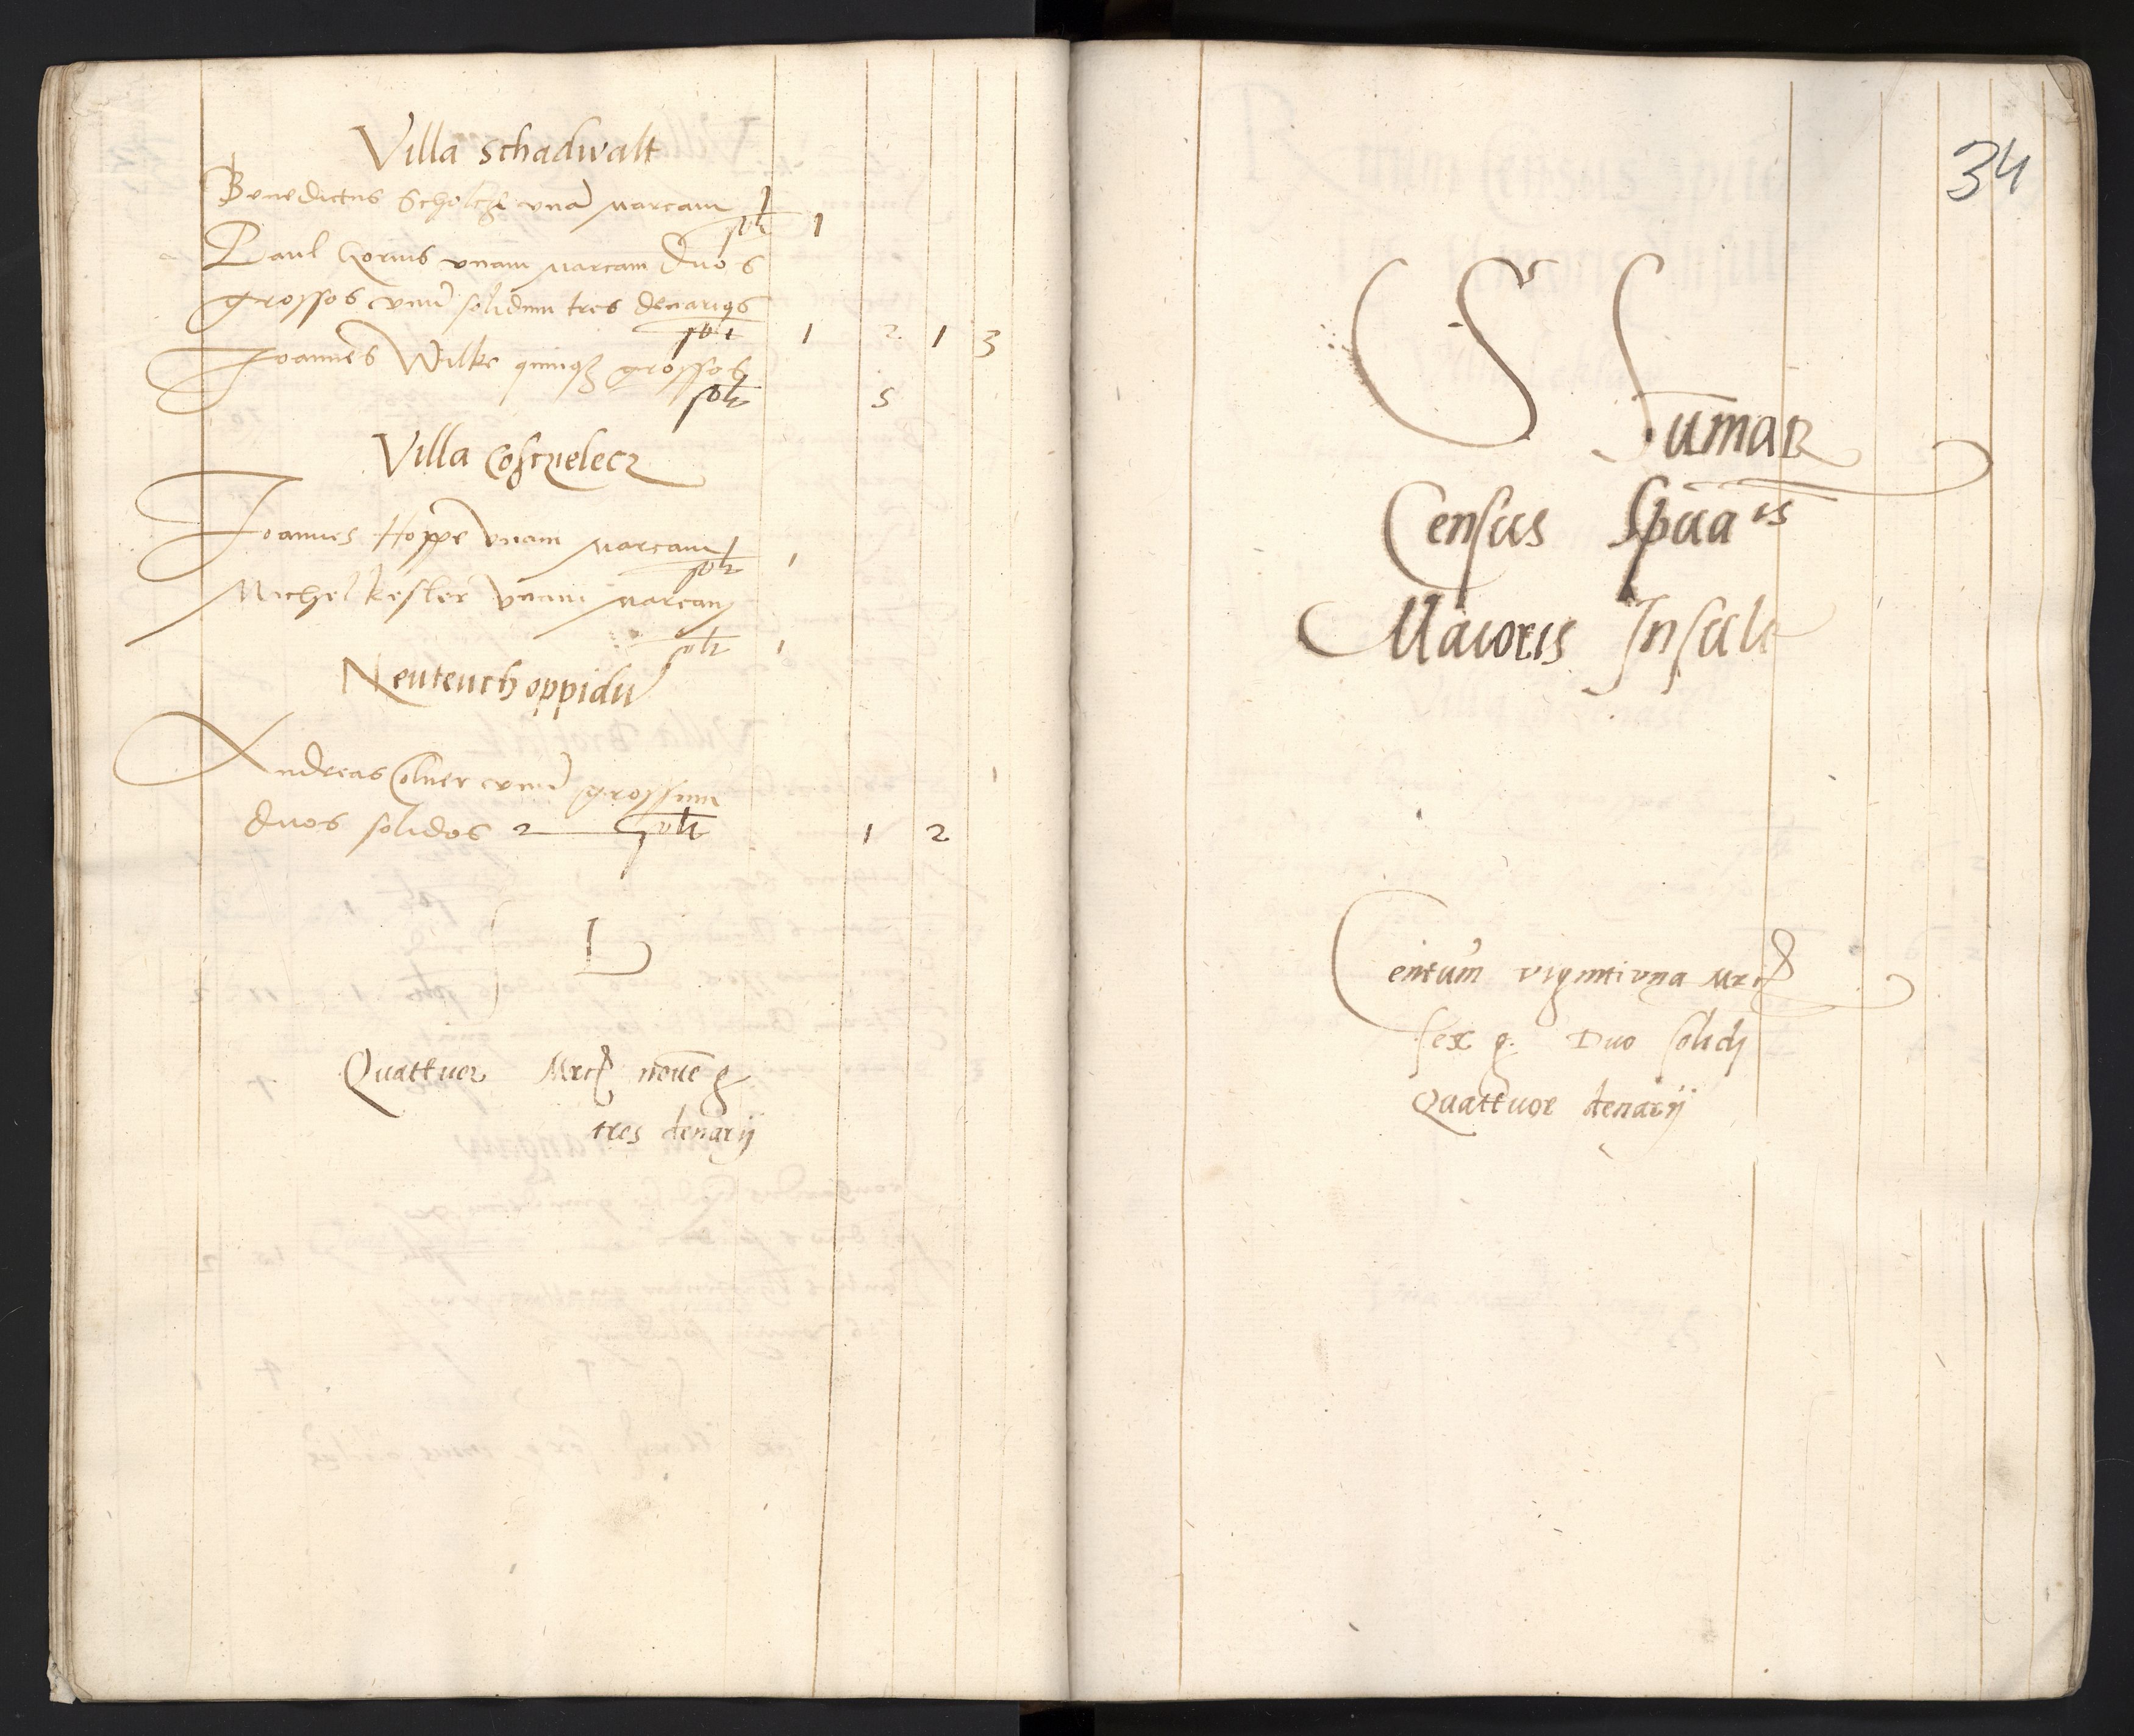 Villa Schadwalt
Benedictus Scholcze unā marcam
solt 1
Paul Gorius unam marcam duos
grossos unū solidum tres denarios
solt 1 2 1 3
Joannes Wilke quinqz grossos
solt 5
Villa
Joannes Hoppe unam marcam
solt 1
Michel Kesler unam marcam
solt 1
Neuteuch oppidū
Andreas Colner unū grossum
duos solidos 2 solt 1 2
L
Quattuor Mrcs noūe g
tres denarij
34
S Sumar
Census
Maioris Insule
Centum viginti una Mrcs
sex g. Duo solidi
Quattuor denarij